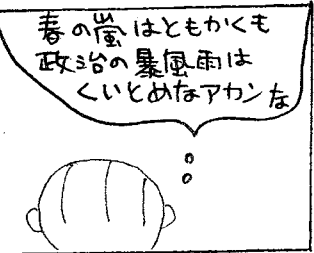 春の嵐はともかくも
政治の暴風雨は
くいとめなアカンな